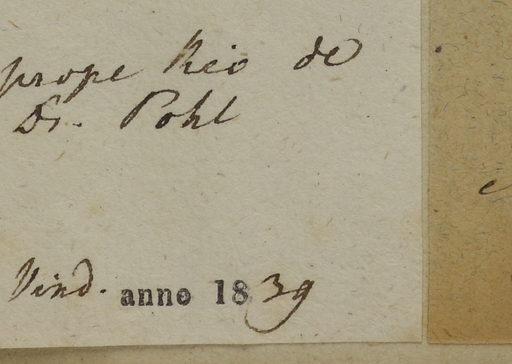 prope Rio de
Dr. Pohl
Vind. anno 1839